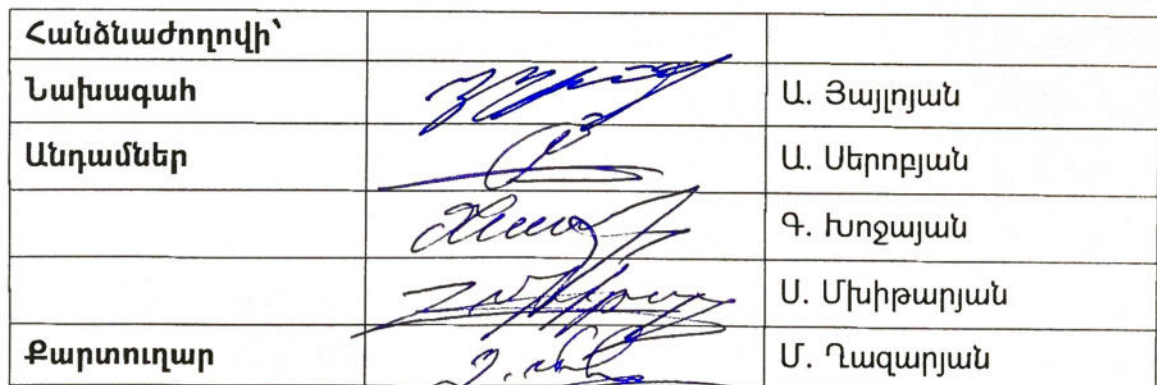 Հանձնաժողովի՝
Նախագահ Ա. Յայլոյան
Անդամներ Ա. Սերոբյան
Գ. Խոջայան
Ս. Մխիթարյան
Քարտուղար Մ. Ղազարյան